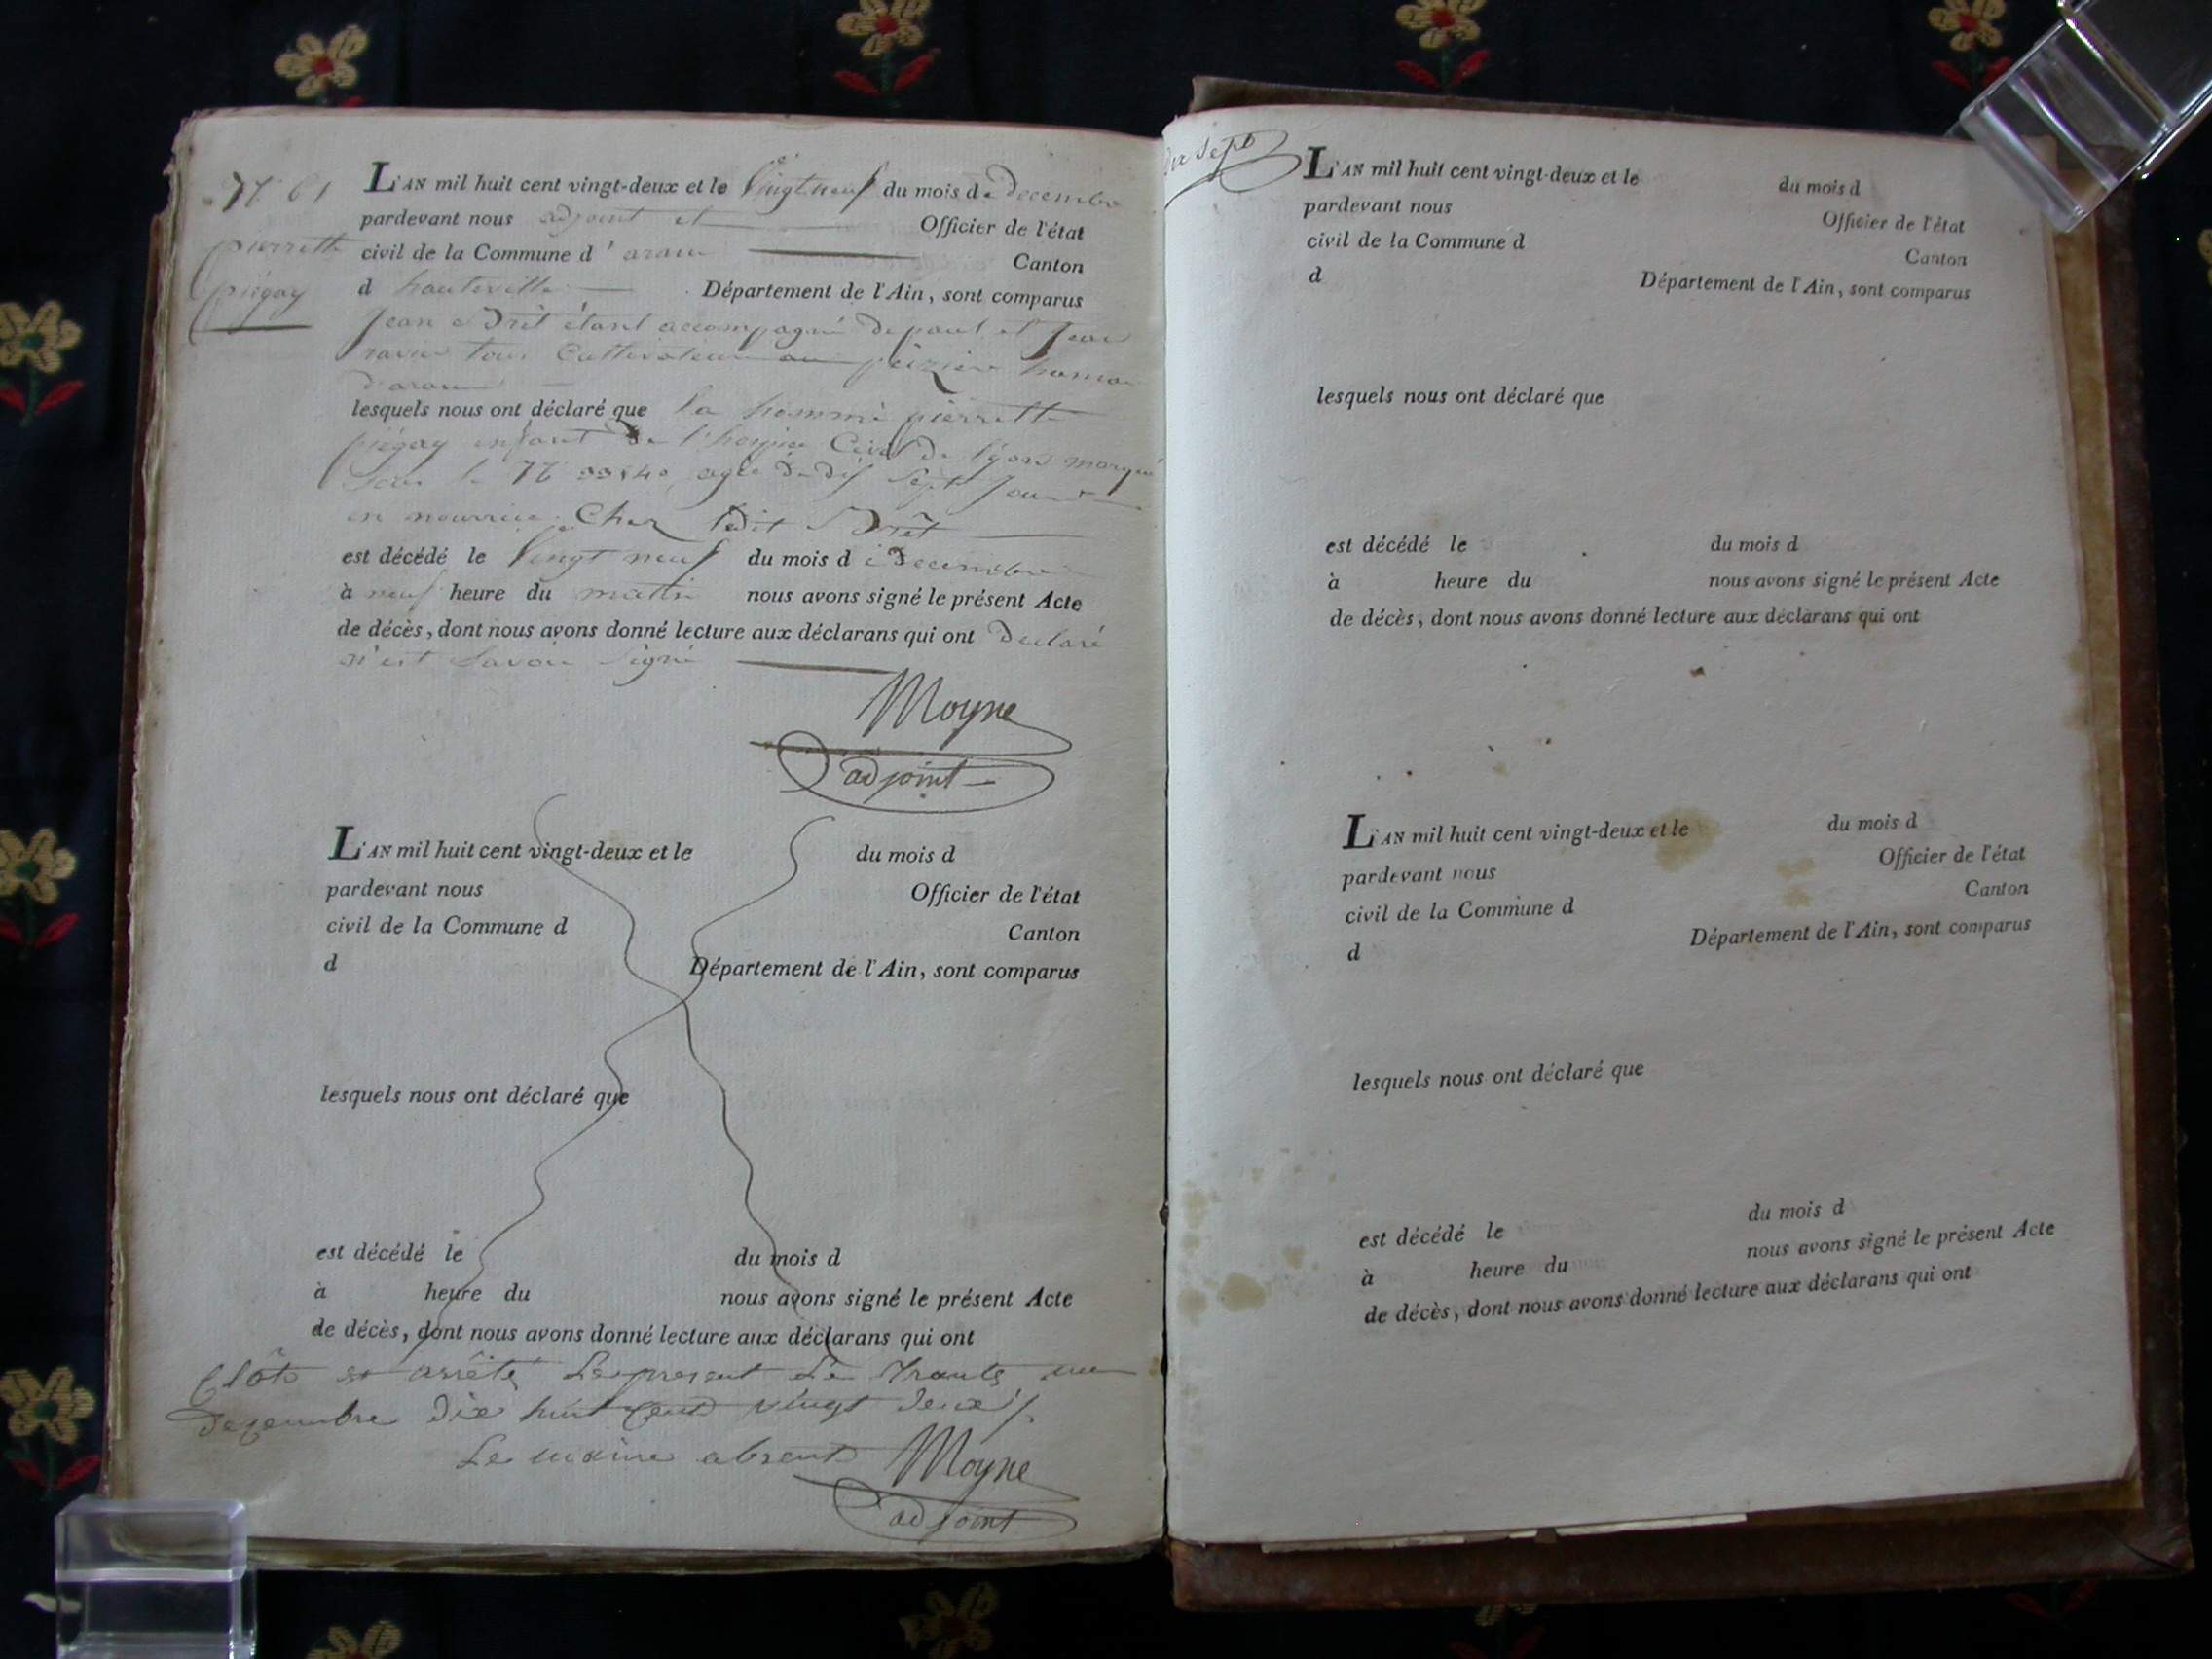 61
pierrette
piégay
L'AN mil huit cent vingt-deux et le Vingt neuf du mois de Decembre
pardevant nous adjoint et Officier de l'état
civil de la Commune d'aranc Canton
d hauteville Département de l'Ain, sont comparus
Jean Drêt étant accompagné de paul et Jean
ravier tous Cultivateur
d'aranc
lesquels nous ont déclaré que la nommé pierrette
piégay enfant de l'hospice Civil de lyon marqué
Sous le agée de dis Sept Jour
en nourrice Chez ledit Drêt
est décédé le Vingt neuf du mois de Decembre
à neuf heure du matin nous avons signé le présent Acte
de décès, dont nous avons donné lecture aux déclarans qui ont declaré
n'est Savoir Signé
Moyne
adjoint
L'AN mil huit cent vingt-deux et le du mois d
pardevant nous Officier de l'état
civil de la Commune d Canton
d Département de l'Ain, sont comparus
lesquels nous ont déclaré que
est décédé le du mois d
à heure du nous avons signé le présent Acte
de décès, dont nous avons donné lecture aux déclarans qui ont
Clôts et arrêté Le present Le Trante un
decembre dix huit Cent vingt deux
Le maire absent Moyne
adjoint
sept
L'AN mil huit cent vingt-deux et le du mois d
pardevant nous Officier de l'état
civil de la Commune d Canton
d Département de l'Ain, sont comparus
lesquels nous ont déclaré que
est décédé le du mois d
à heure du nous avons signé le présent Acte
de décès, dont nous avons donné lecture aux déclarans qui ont
L'AN mil huit cent vingt-deux et le du mois d
pardevant nous Officier de l'état
civil de la Commune d Canton
d Département de l'Ain, sont comparus
lesquels nous ont déclaré que
est décédé le du mois d
à heure du nous avons signé le présent Acte
de décès, dont nous avons donné lecture aux déclarans qui ont